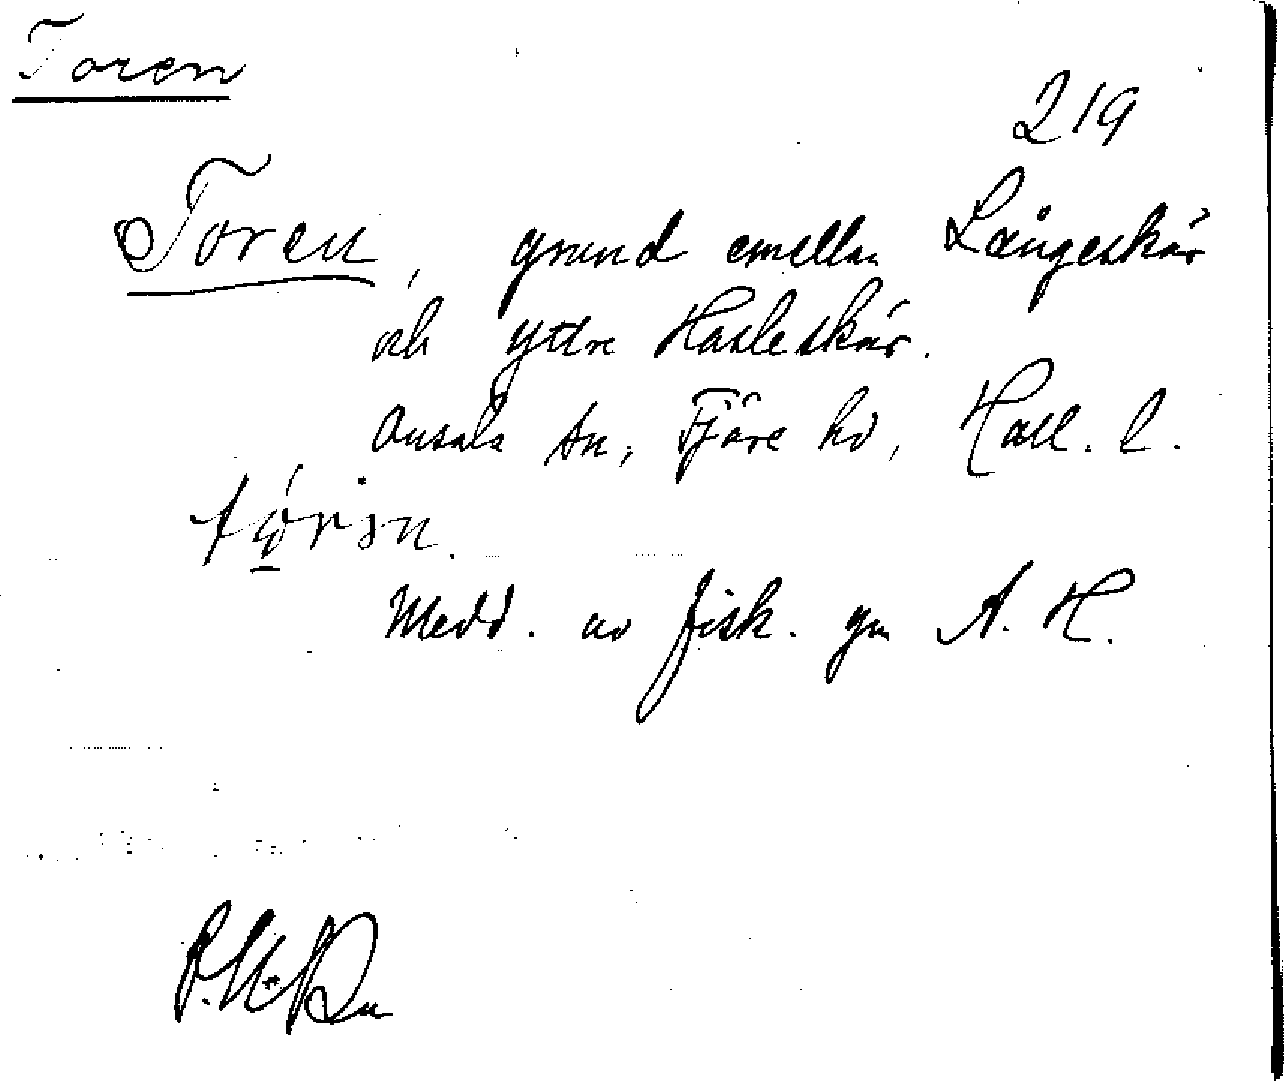 Toren
219
Toren, grund emellan Långeskär
och yttre Hasleskär.
Onsala sn, Fjäre hd, Hall. l.
Medd. av fisk. gm A. H.